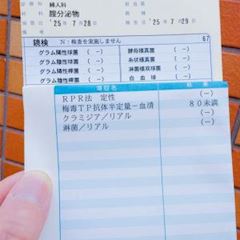 婦人科
膣分泌物
'25年7月28日 '25年7月29日
鏡検 N:検査を実施しません 67
グラム陽性球菌 (-) 酵母様真菌 (-)
グラム陽性桿菌 (-) 糸状様真菌 (-)
グラム陰性球菌 (-) 淋菌様双球菌 (-)
グラム陰性桿菌 (-) 白血球 (-)
項目名 結果
RPR法 定性 (-)
梅毒TP抗体半定量-血清 80未満
クラミジア/リアル (-)
淋菌/リアル (-)